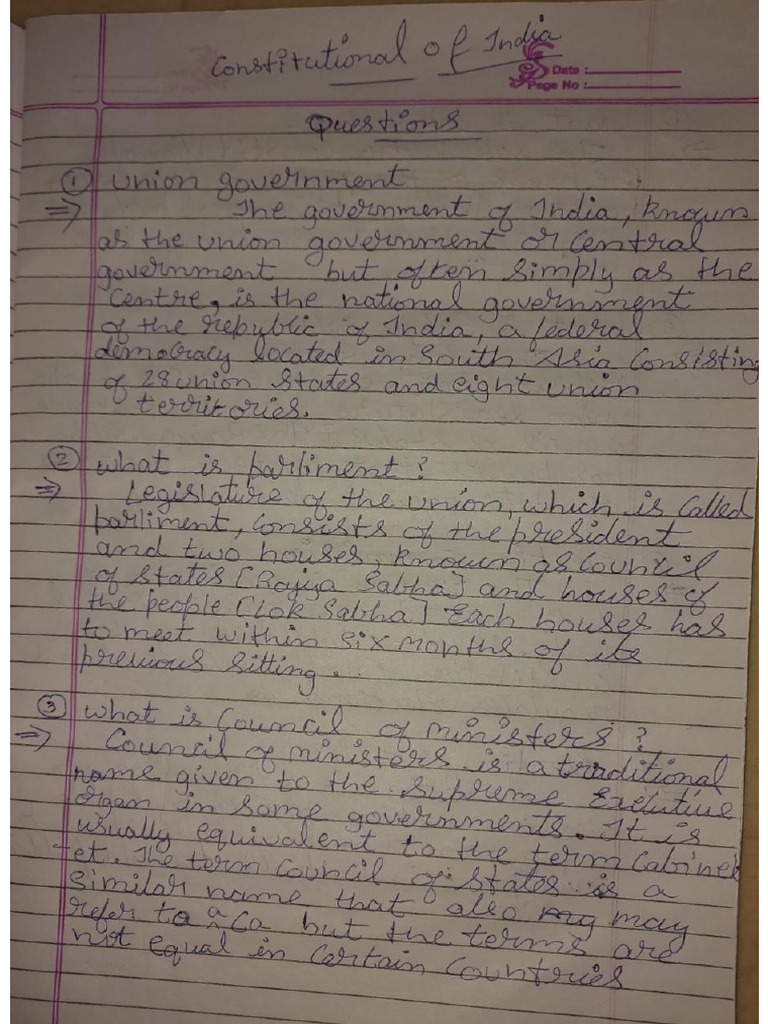 Constitutional of India
Date :
Page No :
Questions
① Union government
⇒ The government of India, known
as the union government or Central
government but often simply as the
Centre, is the national government
of the republic of India, a federal
democracy located in South Asia Consisting
of 28 union states and eight union
territories.
② what is parliment ?
⇒ Legislature of the union, which is Called
parliment, Consists of the president
and two houses, known as Council
of states [Rajya Sabha] and houses of
the people [Lok Sabha] Each houses has
to meet within six months of its
previous sitting.
③ what is Council of ministers ?
⇒ Council of ministers is a traditional
name given to the supreme Executive
organ in some governments. It is
usually equivalent to the term Cabine
tet. The term Council of states is a
similar name that also may
refer to a Ca but the terms are
not equal in Certain Countries